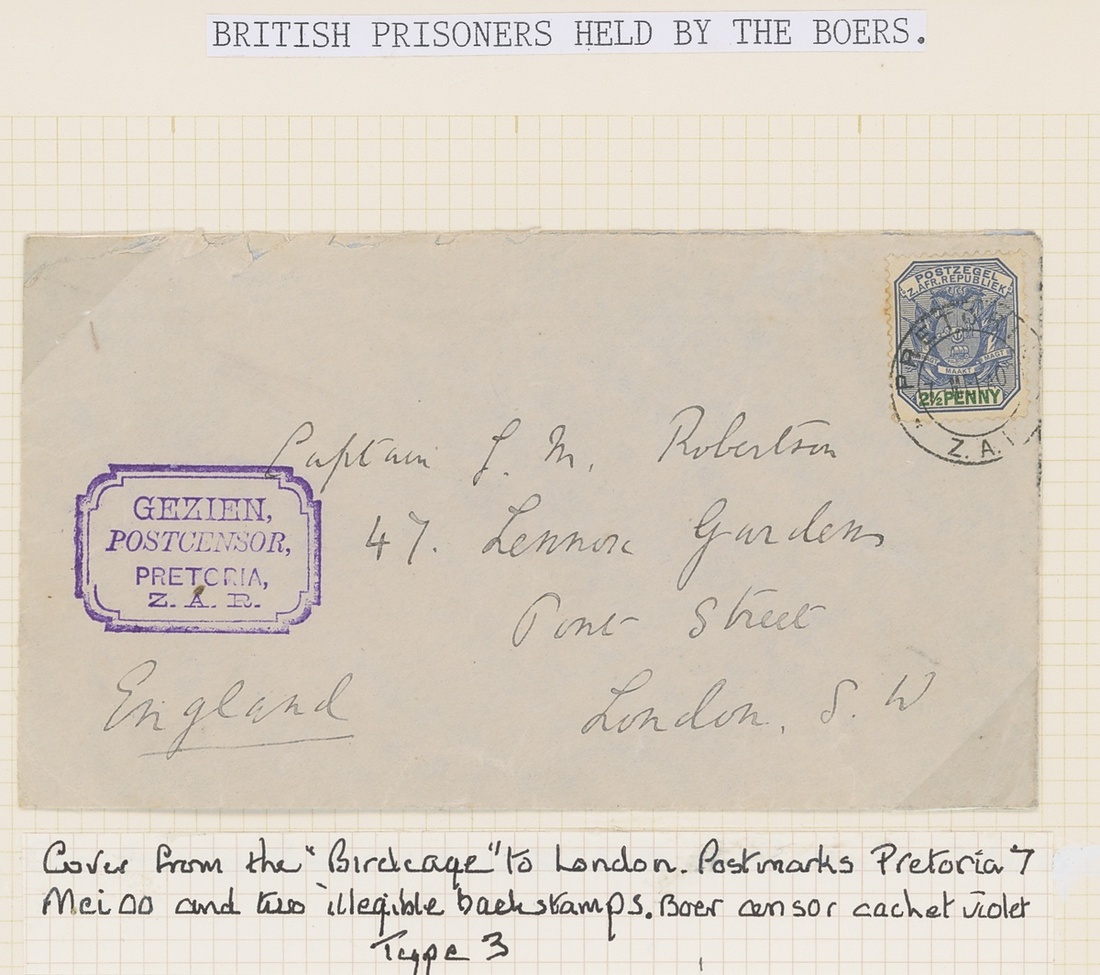 BRITISH PRISONERS HELD BY THE BOERS.
POSTZEGEL
Z. AFR. REPUBLIEK
MAAKT MAGT
2½ PENNY
PRETORI
Z. A.
Captain J. M. Robertson
GEZIEN,
POSTCENSOR,
PRETORIA,
Z. A. R.
47. Lennox Gardens
Pont Street
London, S. W
England
Cover from the "Birdcage" to London. Postmarks Pretoria 7
Mei 00 and two illegible backstamps. Boer censor cachet violet
Type 3